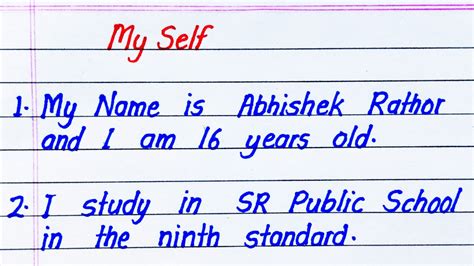 My Self
1. My Name is Abhishek Rathor
and I am 16 years old.
2. I study in SR Public School
in the ninth standard.